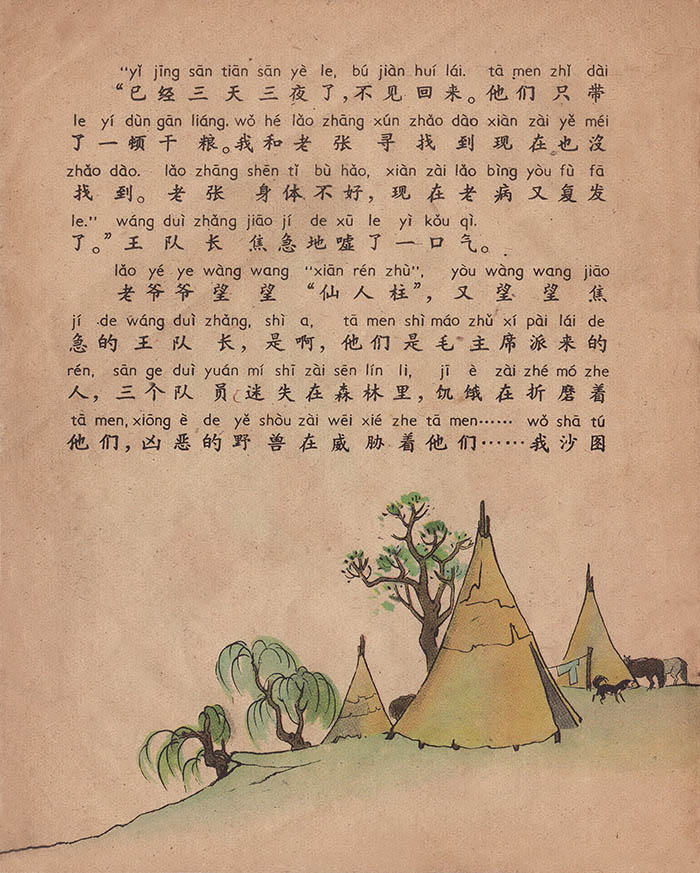 “yǐ jīng sān tiān sān yè le, bú jiàn huí lái. tā men zhǐ dài
“已经三天三夜了，不见回来。他们只带
le yí dùn gān liáng. wǒ hé lǎo zhāng xún zhǎo dào xiàn zài yě méi
了一顿干粮。我和老张寻找到现在也没
zhǎo dào. lǎo zhāng shēn tǐ bù hǎo, xiàn zài lǎo bìng yòu fù fā
找到。老张身体不好，现在老病又复发
le.” wáng duì zhǎng jiāo jí de xū le yì kǒu qì.
了。”王队长焦急地嘘了一口气。
lǎo yé ye wàng wang “xiān rén zhù”, yòu wàng wang jiāo
老爷爷望望“仙人柱”，又望望焦
jí de wáng duì zhǎng, shì a, tā men shì máo zhǔ xí pài lái de
急的王队长，是啊，他们是毛主席派来的
rén, sān ge duì yuán mí shī zài sēn lín li, jī è zài zhé mó zhe
人，三个队员迷失在森林里，饥饿在折磨着
tā men, xiōng è de yě shòu zài wēi xié zhe tā men…… wǒ shā tú
他们，凶恶的野兽在威胁着他们……我沙图